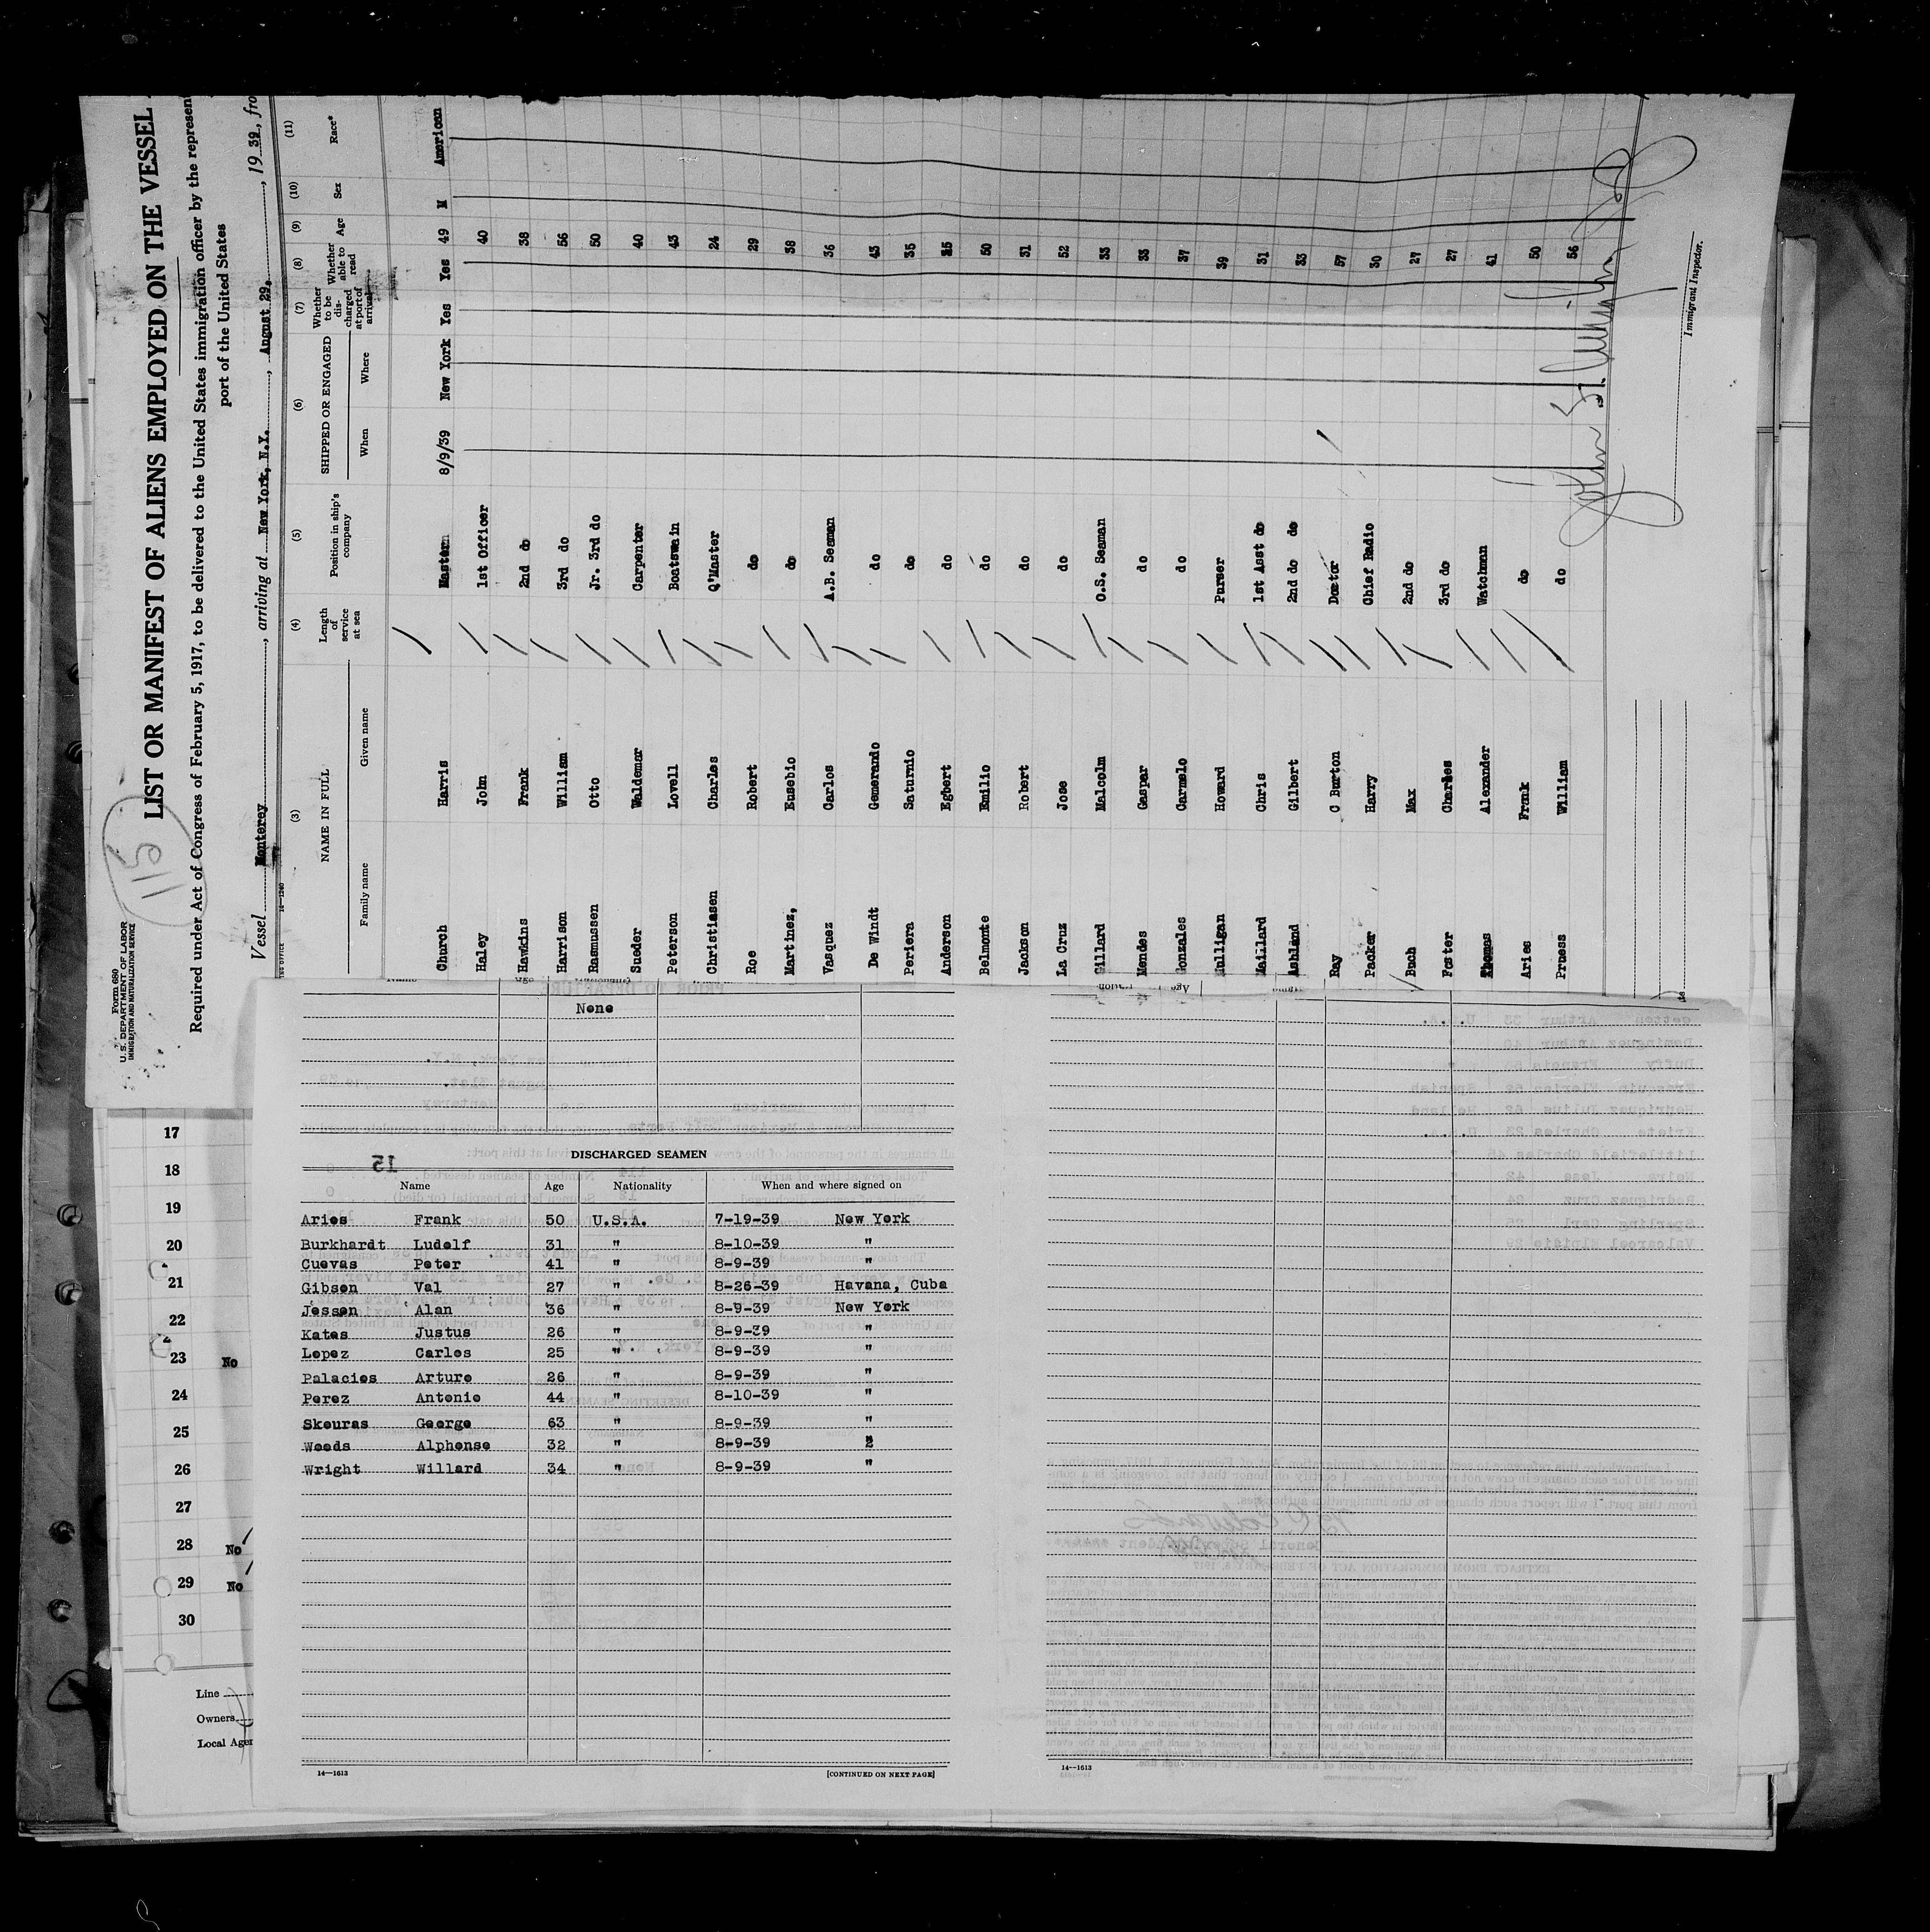 Form 680
U.S. DEPARTMENT OF LABOR
IMMIGRATION AND NATURALIZATION SERVICE
115
LIST OR MANIFEST OF ALIENS EMPLOYED ON THE VESSEL
Required under Act of Congress of February 5, 1917, to be delivered to the United States immigration officer by the represen
port of the United States
Vessel Monterey, arriving at New York, N.Y., August 29, 1939, fro
14—1240
(3) (4) (5) (6) (7) (8) (9) (10) (11)
NAME IN FULL Length of service at sea Position in ship's company SHIPPED OR ENGAGED Whether to be discharged at port of arrival Whether able to read Age Sex Race*
Family name Given name When Where
Church Harris Master 8/9/39 New York Yes Yes 49 M American
Haley John 1st Officer 40
Hawkins Frank 2nd do 38
Harrison William 3rd do 56
Rasmussen Otto Jr. 3rd do 50
Sueder Waldemar Carpenter 40
Peterson Lovell Boatswain 43
Christiasen Charles Q'Master 24
Roe Robert do 29
Martinez, Eusebio do 38
Vasquez Carlos A.B. Seaman 36
De Windt Gemerando do 43
Periera Saturnio do 35
Anderson Egbert do
Belmonte Emilio do 50
Jackson Robert do 31
La Cruz Jose do 52
Gillard Malcolm O.S. Seaman 33
Mendes Gaspar do 33
Gonzales Carmelo do 37
Mulligan Howard Purser 39
Maillard Chris 1st Asst do 31
Ashland Gilbert 2nd do do 33
Ray C Burton Doctor 57
Packer Harry Chief Radio 30
Buch Max 2nd do 27
Foster Charles 3rd do 27
Thomas Alexander Watchman 41
Aries Frank do 50
Pruess William do 56
Immigrant Inspector.
None
15
DISCHARGED SEAMEN
Name Age Nationality When and where signed on
Aries Frank 50 U.S.A. 7-19-39 New York
Burkhardt Ludolf 31 " 8-10-39 "
Cuevas Peter 41 " 8-9-39 "
Gibson Val 27 " 8-26-39 Havana, Cuba
Jessen Alan 36 " 8-9-39 New York
Kates Justus 26 " 8-9-39 "
Lopez Carlos 25 " 8-9-39 "
Palacios Arturo 26 " 8-9-39 "
Perez Antonio 44 " 8-10-39 "
Skouras George 63 " 8-9-39 "
Woods Alphonso 32 " 8-9-39
Wright Willard 34 " 8-9-39 "
14—1613 [CONTINUED ON NEXT PAGE]
14—1613
17
18
19
20
21
22
23 No
24
25
26
27
28 No
29 No
30
Line
Owners
Local Agen